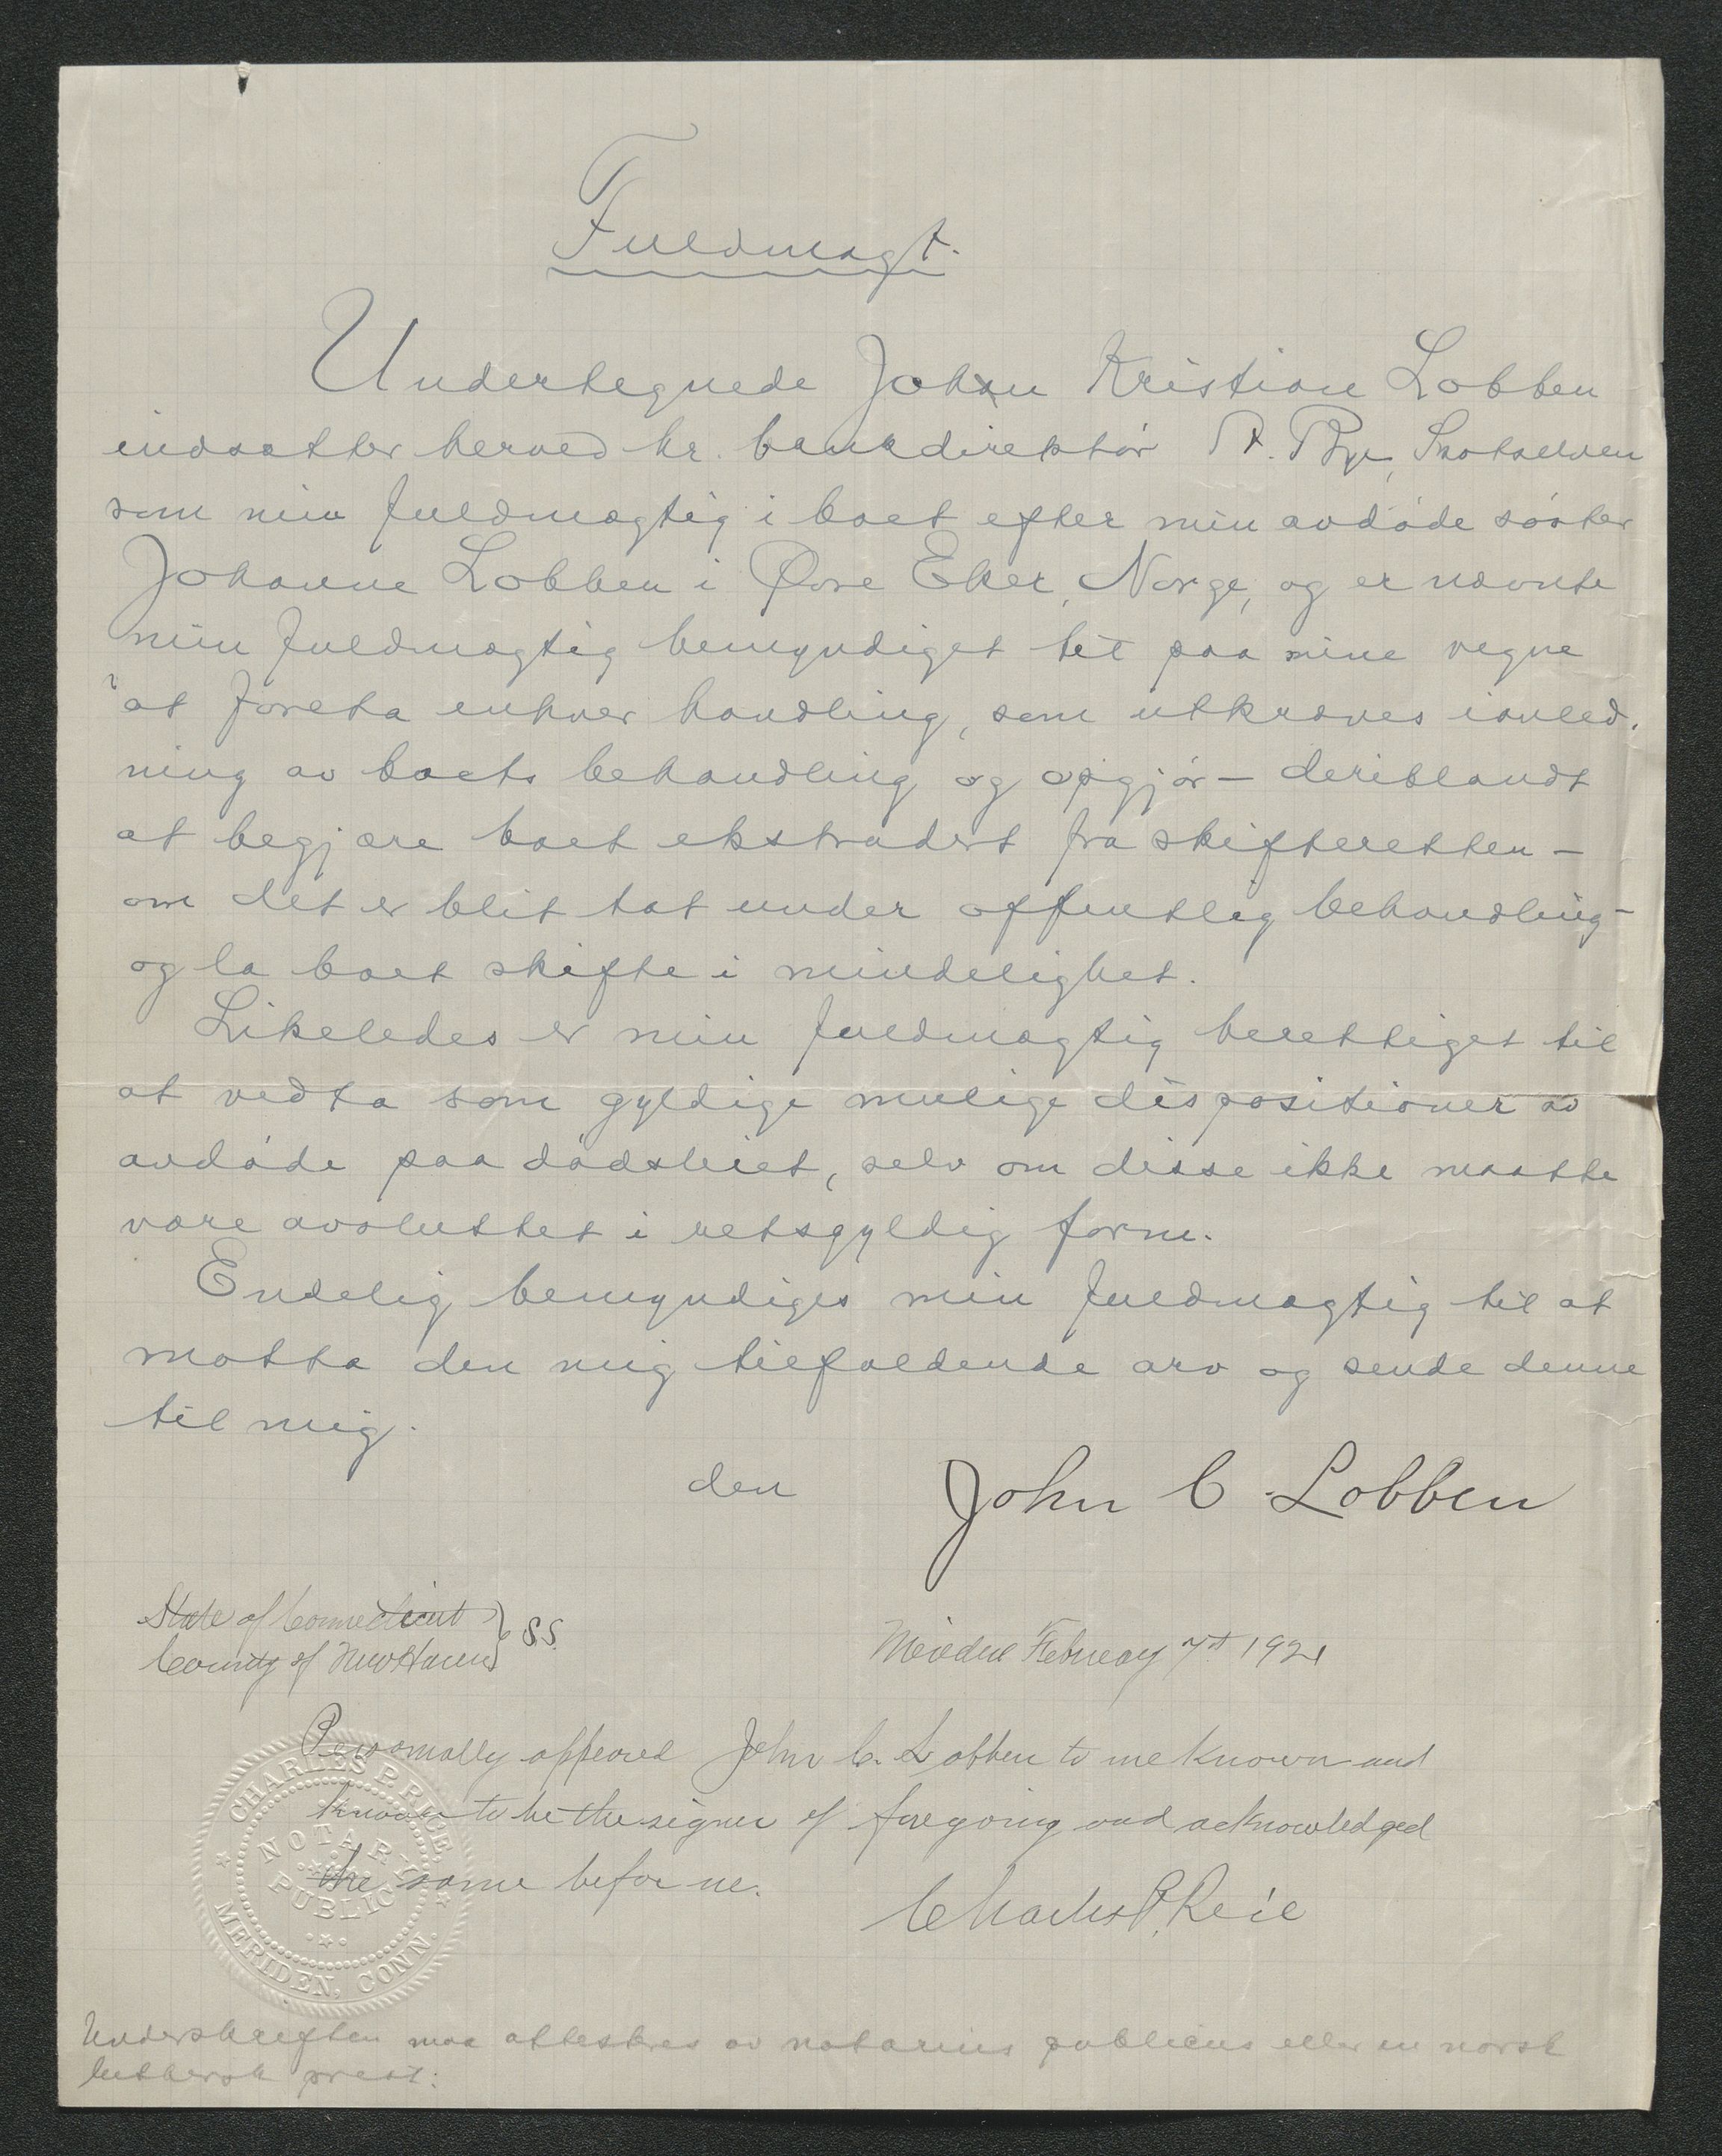 Fuldmagt.
Undertegnede Johan Kristian Lobben
indsætter herved hr. bankdirektør A. Bye, Skotselven
som min fuldmægtig i boet efter min avdøde søster
Johanne Lobben i Øvre Eker, Norge, og er nævnte
min fuldmægtig bemyndiget til paa mine vegne
at foreta enhver handling, som utkræves i anled-
ning av boets behandling og opgjør – deriblandt
at begjære boet ekstradert fra skifteretten –
om det er blit tat under offentlig behandling –
og la boet skifte i mindelighet.
Likeledes er min fuldmægtig berettiget til
at vedta som gyldige mulige dispositioner av
avdøde paa dødsleiet, selv om disse ikke maatte
være avsluttet i retsgyldig form.
Endelig bemyndiges min fuldmægtig til at
motta den mig tilfaldende arv og sende denne
til mig.
den John C. Lobben
State of Connecticut } S.S. Meriden February 7th 1921
County of New Haven
Personally appeared John C. Lobben to me known and
known to be the signer of foregoing and acknowledged
the same before me.
Charles P. Rice
CHARLES P. RICE,
NOTARY
PUBLIC
MERIDEN, CONN.
Underskriften maa attesteres av notarius publicus eller en norsk
luthersk prest.